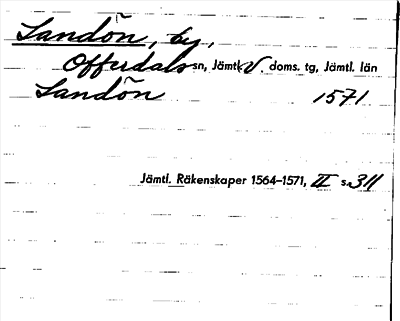 Landön, by,
Offerdals sn, Jämtl. V. doms. tg, Jämtl. län
Landön 1571
Jämtl. Räkenskaper 1564–1571, II s. 311